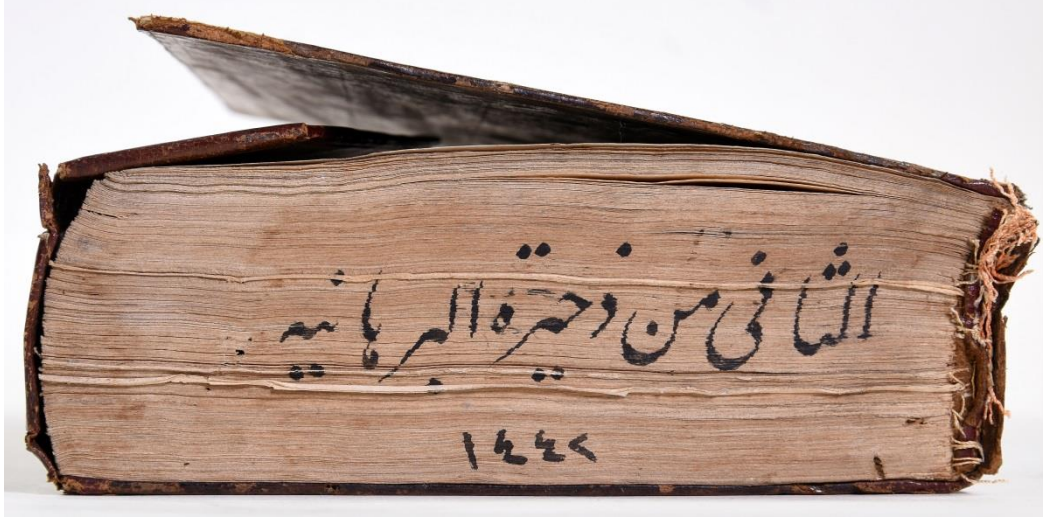 الثانى من ذخيرة البرهانيه
١٤٤٢